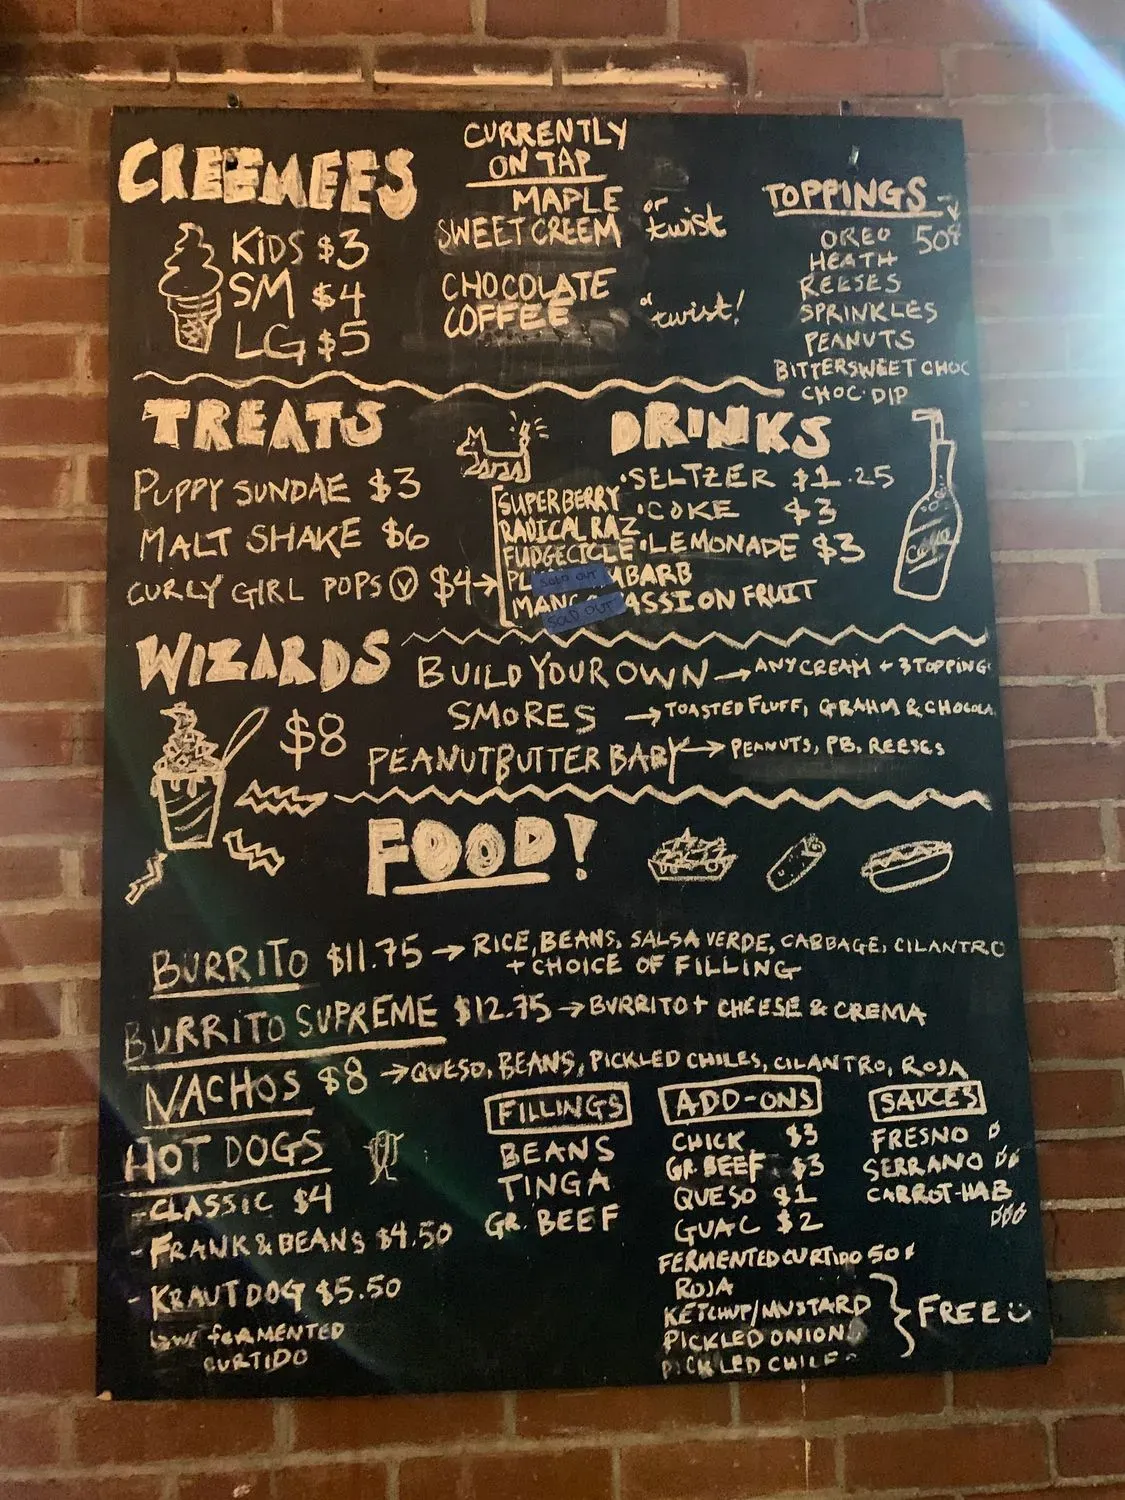 CREEMEES
KIDS $3
SM $4
LG $5
CURRENTLY
ON TAP
MAPLE
SWEET CREEM
or twist
CHOCOLATE
COFFEE
twist!
TOPPINGS
50¢
OREO
HEATH
REESES
SPRINKLES
PEANUTS
BITTERSWEET CHOC
CHOC. DIP
TREATS
PUPPY SUNDAE $3
MALT SHAKE $6
CURLY GIRL POPS Ⓥ $4→
SUPERBERRY
RADICAL RAZ
FUDGECICLE
SOLD OUT
SOLD OUT
ASSION FRUIT
DRINKS
·SELTZER $1.25
·COKE $3
·LEMONADE $3
WIZARDS
$8
BUILD YOUR OWN → ANY CREAM + 3 TOPPING
SMORES → TOASTED FLUFF, GRAHM & CHOCOLA
PEANUTBUTTER BABY → PEANUTS, PB, REESES
FOOD!
BURRITO $11.75 → RICE, BEANS, SALSA VERDE, CABBAGE, CILANTRO
+ CHOICE OF FILLING
BURRITO SUPREME $12.75 → BURRITO + CHEESE & CREMA
NACHOS $8 → QUESO, BEANS, PICKLED CHILES, CILANTRO, ROJA
HOT DOGS
-CLASSIC $4
-FRANK & BEANS $4.50
-KRAUT DOG $5.50
w/ FERMENTED
CURTIDO
FILLINGS
BEANS
TINGA
GR. BEEF
ADD-ONS
CHICK $3
GR. BEEF $3
QUESO $1
GUAC $2
FERMENTED CURTIDO 50¢
ROJA
KETCHUP/MUSTARD
PICKLED ONION
PICKLED CHILE
FREE
SAUCES
FRESNO
SERRANO
CARROT-HAB